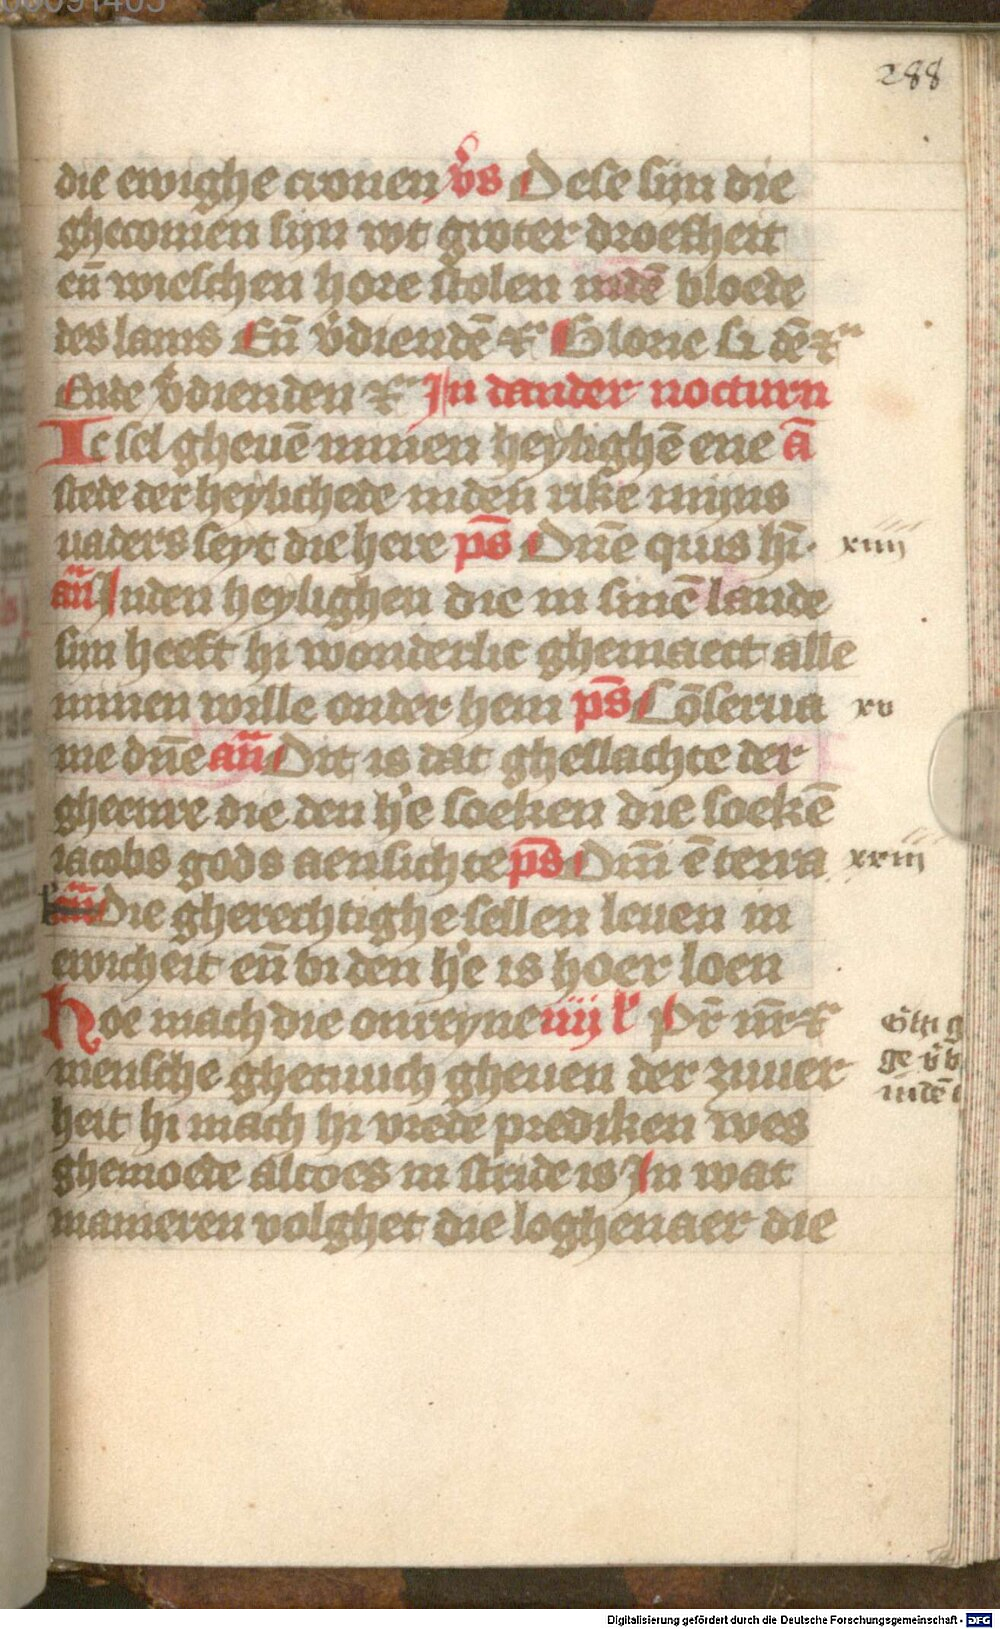 288
die ewighe cronen v̾s Dese sijn die
ghecomen sijn wt groter droefheit
en̄ wieschen hore stolen indē bloede
des lams En̄ v̾diendē ⁊c̃ Glorie si dē ⁊c̃
Ende v̾dienden ⁊c̃ In dander nocturn
Ic sel gheuē minen heylighē ene an̄
stede der heylichede inden rike mijns
uaders seyt die here ps̄ Dn̄e quis hī. xiiii
an̄ Inden heylighen die in sinē lande
sijn heeft hi wonderlic ghemaect alle
minen wille onder hem ps̄ Cōserua xv
me dn̄e an̄ Dit is dat gheslachte der
gheenre die den h̾e soeken die soekē
iacobs gods aensichte ps̄ Dn̄i ē terra xxiii
Die gherechtighe sellen leuen in
ewicheit en̄ bi den h̾e is hoer loen
Hoe mach die onreyne iiij k̾ Pr̄ nr̄ ⁊c̃
mensche ghetuuch gheuen der zuuer
heit hi mach hi vrede prediken wes
ghemoede altoes in stride is In wat
manieren volghet die loghenaer die
Digitalisierung gefördert durch die Deutsche Forschungsgemeinschaft - DFG